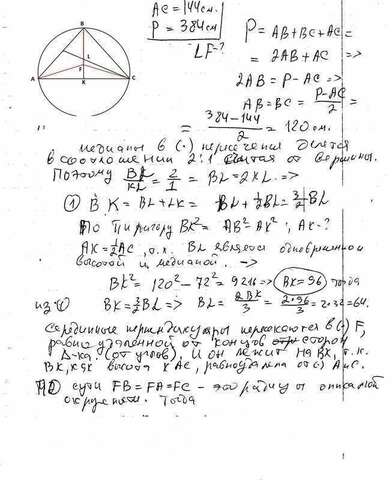 B
L
F
A
K
C
AC = 144 см.
P = 384 см
LF-?
P = AB+BC+AC =
= 2AB + AC =>
2AB = P - AC =>
AB = BC = P-AC/2 =
= 384-144/2 = 120 см.
медианы в (·) пересечения делятся
в соотношении 2:1 считая от вершины.
Поэтому BL/KL = 2/1 = BL = 2KL =>
① BK = BL + LK = BL + 1/2BL = 3/2 BL
По Пифагору BK² = AB² - AK², AK-?
AK = 1/2 AC, т.к. BK является одновременно
высотой и медианой. →
BK² = 120² - 72² = 9216 => BK = 96 тогда
из ① BK = 3/2 BL => BL = 2BK/3 = 2·96/3 = 2·32 = 64.
Серединные перпендикуляры пересекаются в (·) F,
равноудаленной от концов сторон
Δ-ка (от углов). И он лежит на BK, т.к.
BK, как высота к AC, равноудалена от (·) A и C.
По сути FB = FA = FC - это радиусы описаной
окружности. Тогда